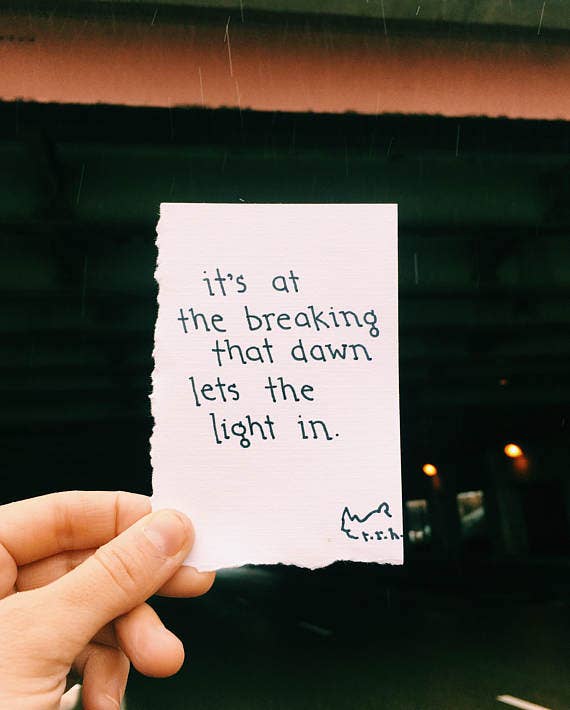 it's at
the breaking
that dawn
lets the
light in.
r.r.h.